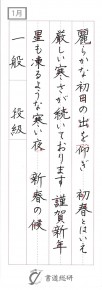 1月
麗らかな初日の出を仰ぎ　初春とはいえ
厳しい寒さが続いております　謹賀新年
星も凍るような寒い夜　新春の候
一般　段級
書道総研